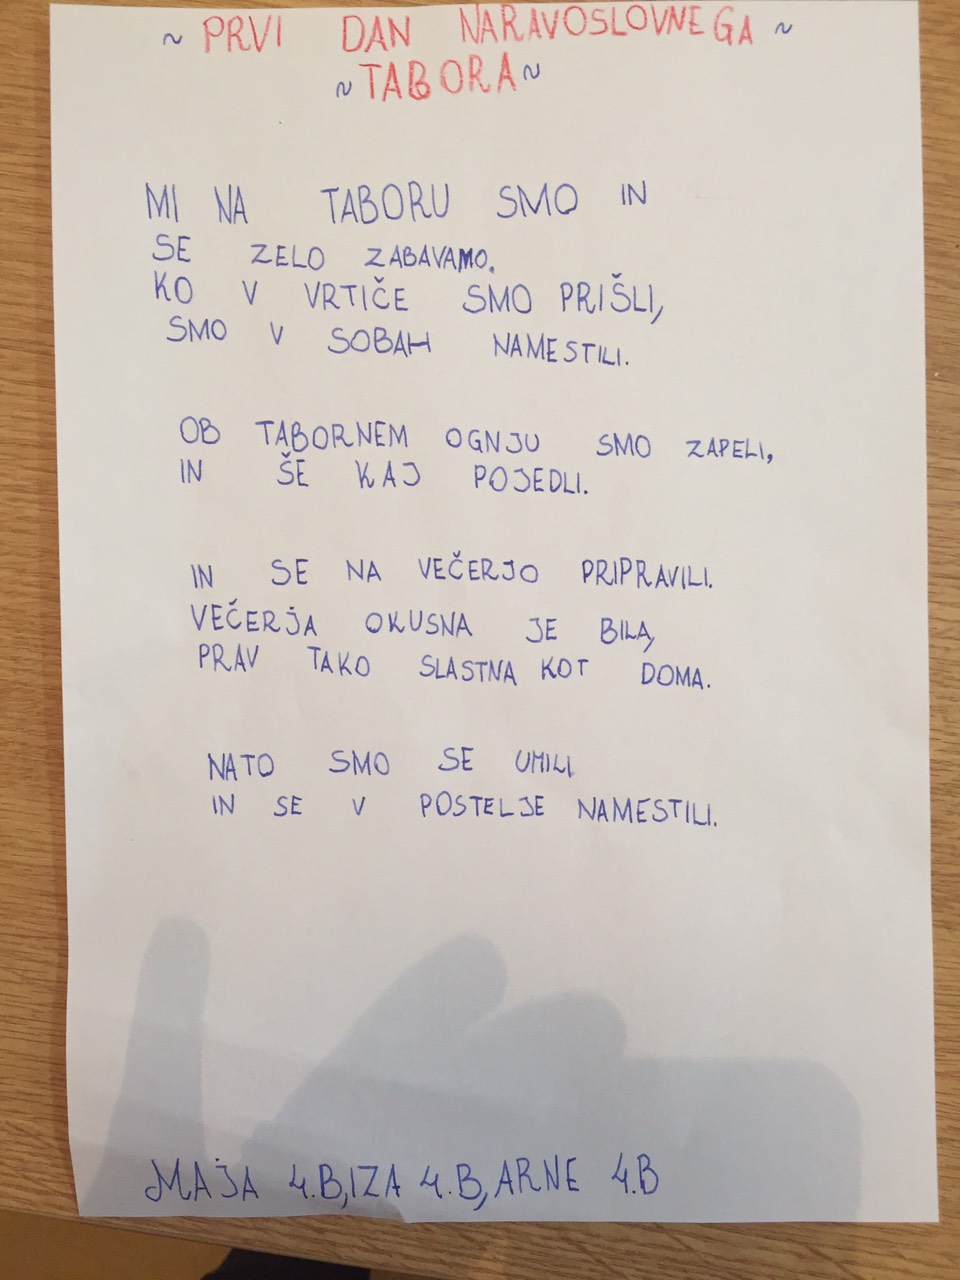 ~ PRVI DAN NARAVOSLOVNEGA ~
~ TABORA ~
MI NA TABORU SMO IN
SE ZELO ZABAVAMO.
KO V VRTIČE SMO PRIŠLI,
SMO V SOBAH NAMESTILI.
OB TABORNEM OGNJU SMO ZAPELI,
IN ŠE KAJ POJEDLI.
IN SE NA VEČERJO PRIPRAVILI.
VEČERJA OKUSNA JE BILA,
PRAV TAKO SLASTNA KOT DOMA.
NATO SMO SE UMILI
IN SE V POSTELJE NAMESTILI.
MAJA 4.B, IZA 4.B, ARNE 4.B